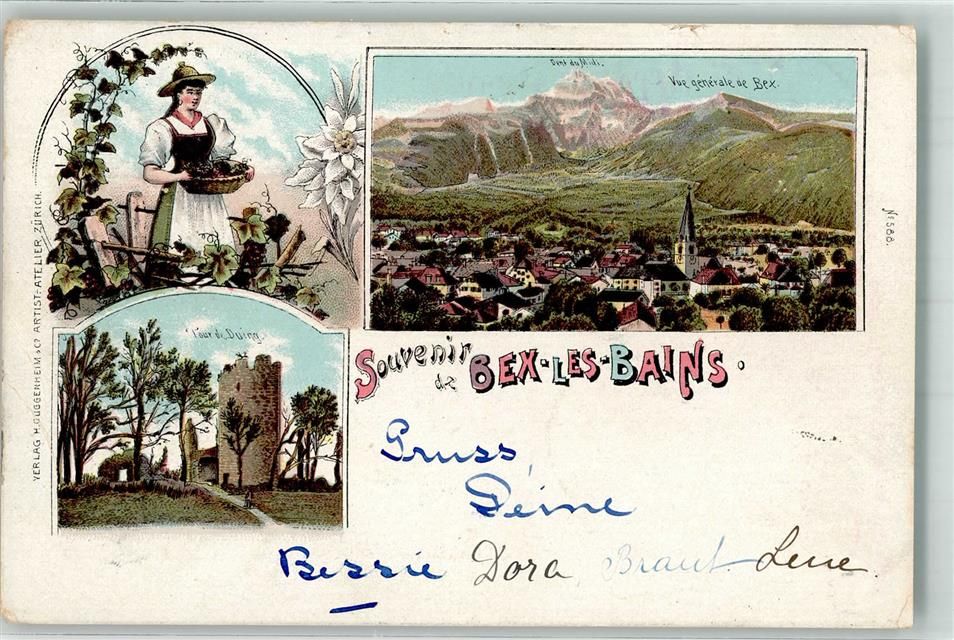 Dent du Midi.
Vue générale de Bex.
Nº 588.
VERLAG H. GUGGENHEIM & Cº ARTIST. ATELIER, ZÜRICH.
Tour de Duing.
Souvenir
de BEX-LES-BAINS.
Gruss,
Deine
Bessie Dora, Braut Lene.